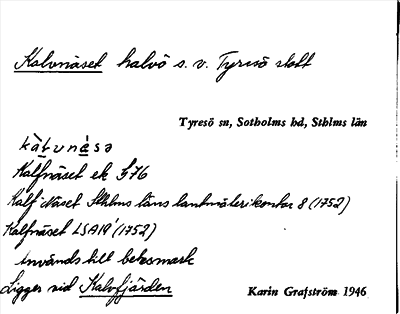 Kalvnäset halvö s.v. Tyresö slott
Tyresö sn, Sotholms hd, Sthlms län
kàlvnásə
Kalfnäset ek 576
Kalf Näset Sthlms läns lantmäterikontor 8 (1752)
Kalfnäset LSA 19¹ (1752)
Används till betesmark
Ligger vid Kalvfjärden
Karin Grafström 1946